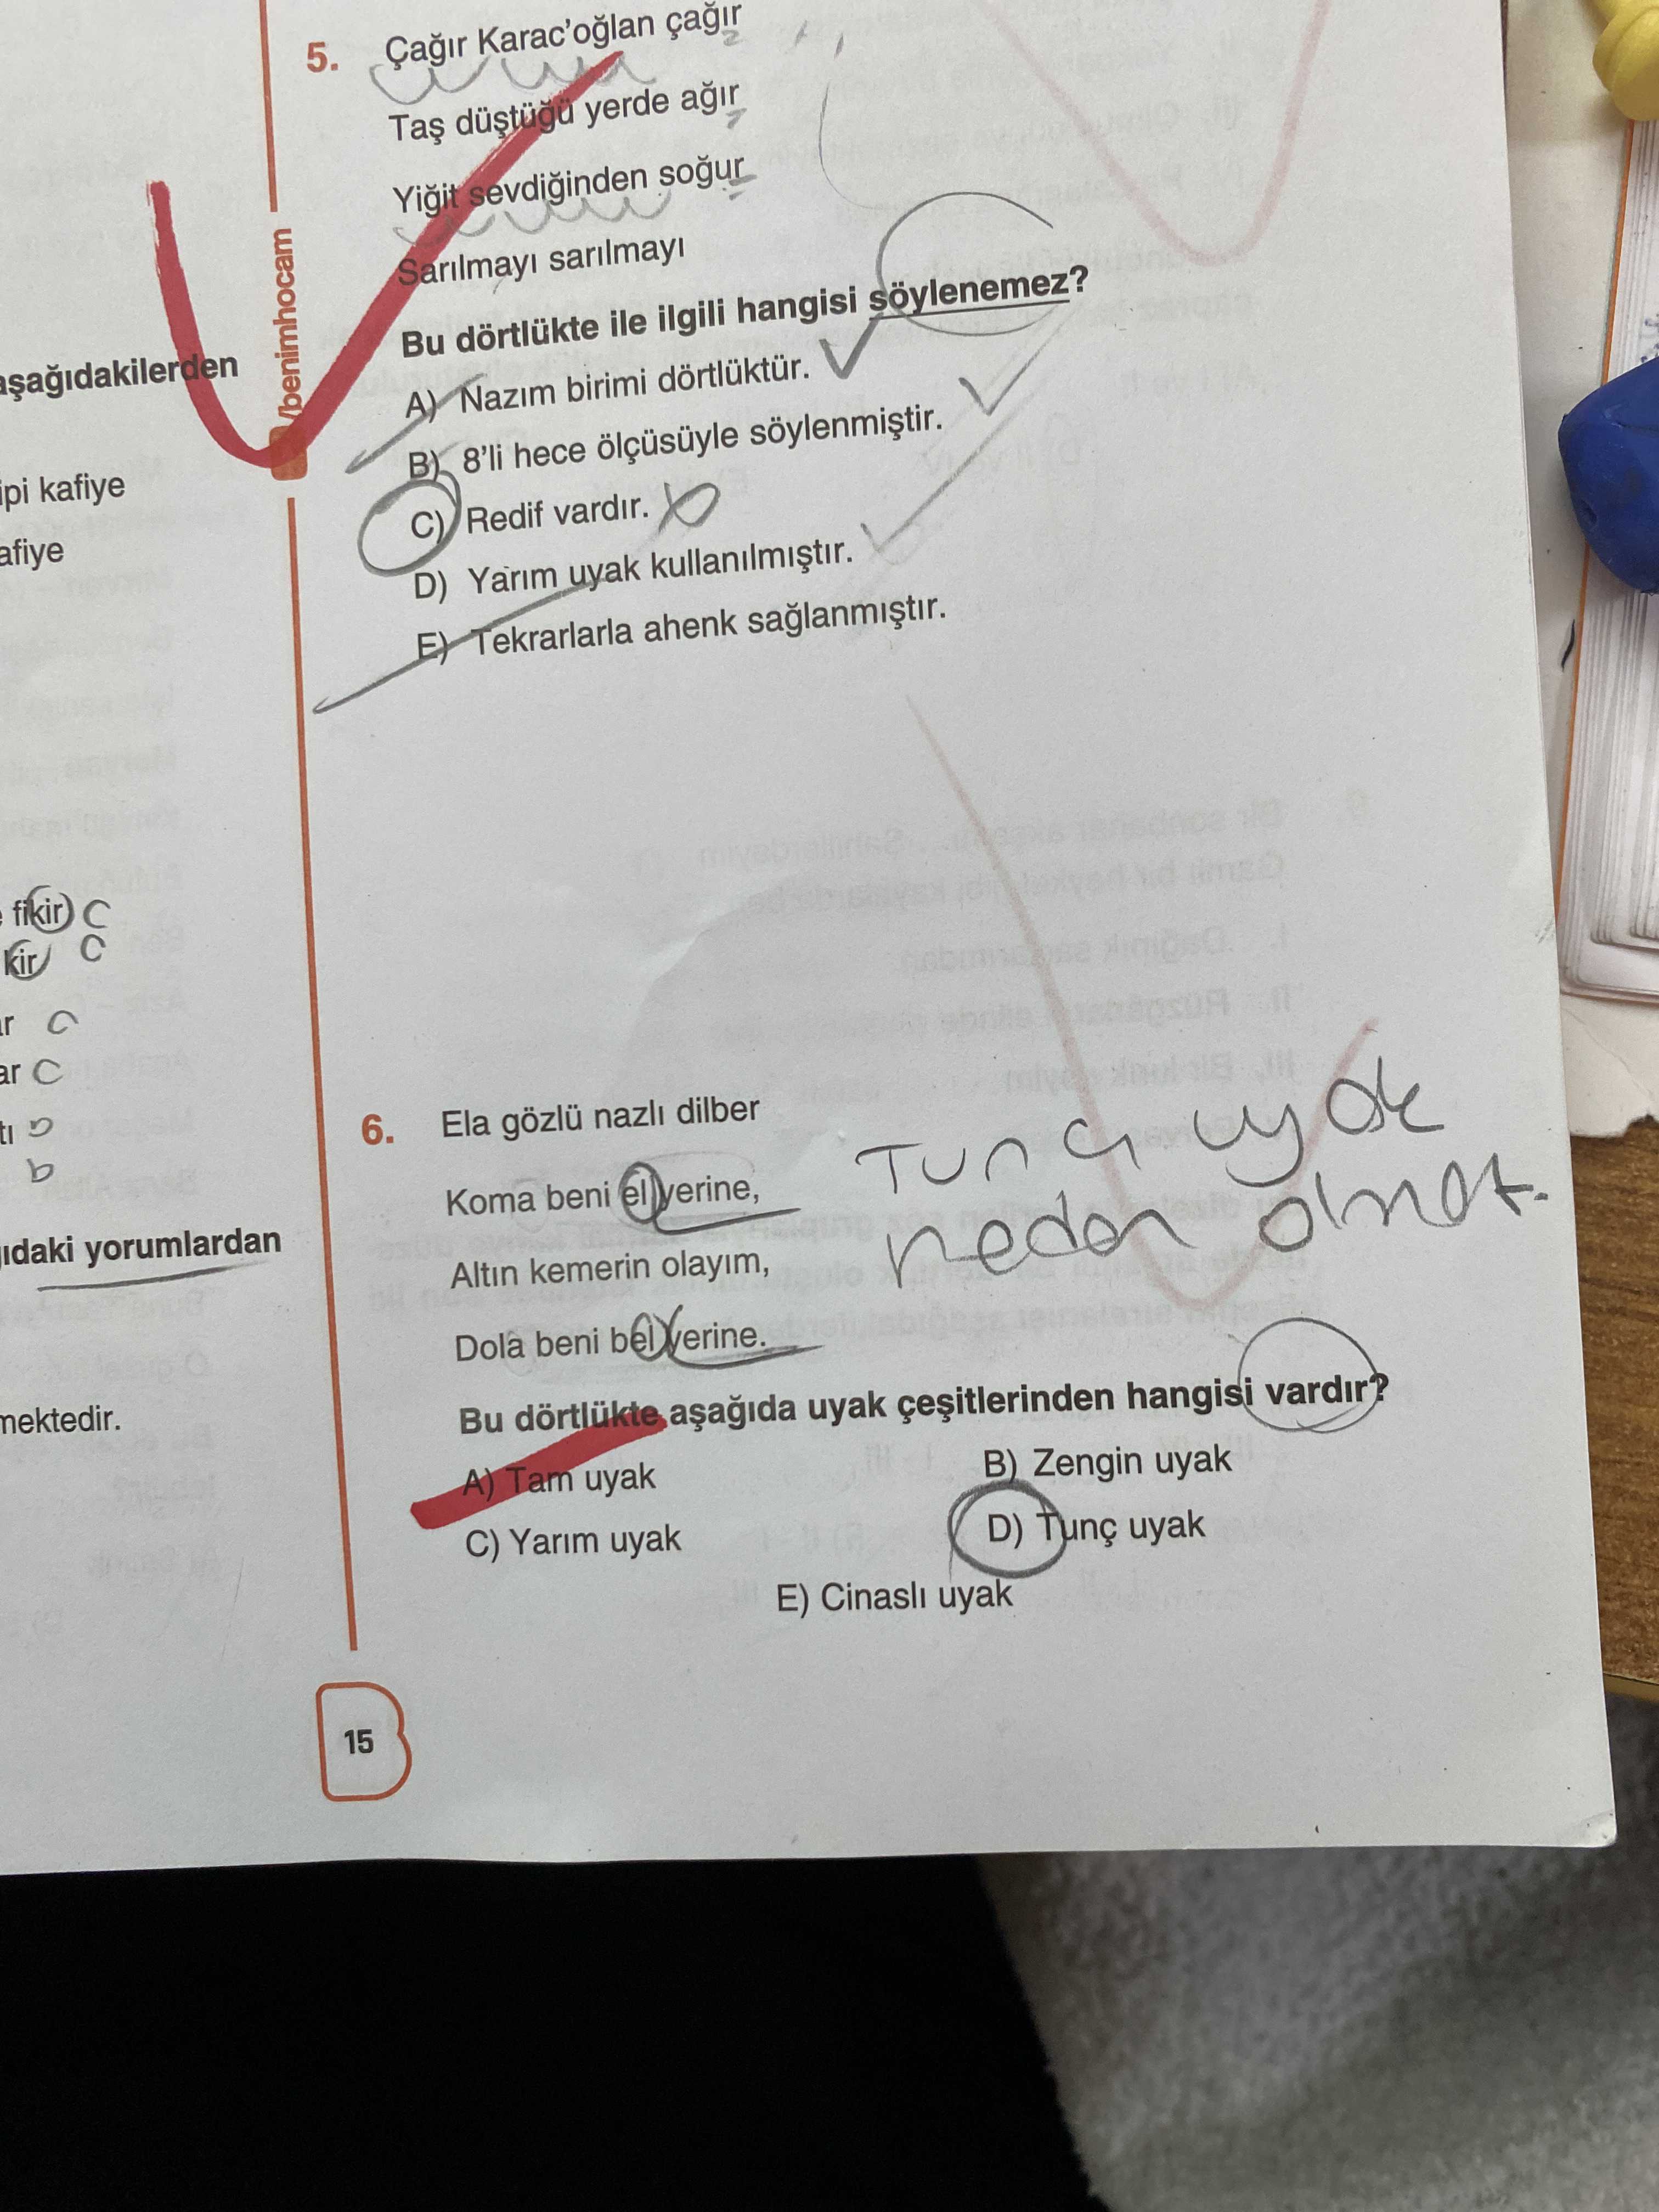 aşağıdakilerden
ipi kafiye
afiye
fikir) C
kir C
ar C
tı b
b
ıdaki yorumlardan
mektedir.
/benimhocam
5. Çağır Karac'oğlan çağır
Taş düştüğü yerde ağır
Yiğit sevdiğinden soğur
Sarılmayı sarılmayı
Bu dörtlükte ile ilgili hangisi söylenemez?
A) Nazım birimi dörtlüktür.
B) 8'li hece ölçüsüyle söylenmiştir.
C) Redif vardır.
D) Yarım uyak kullanılmıştır.
E) Tekrarlarla ahenk sağlanmıştır.
6. Ela gözlü nazlı dilber
Koma beni el yerine,
Altın kemerin olayım,
Dola beni bel yerine.
Tunç uyak
neden olmaz.
Bu dörtlükte aşağıda uyak çeşitlerinden hangisi vardır?
A) Tam uyak
B) Zengin uyak
C) Yarım uyak
D) Tunç uyak
E) Cinaslı uyak
15